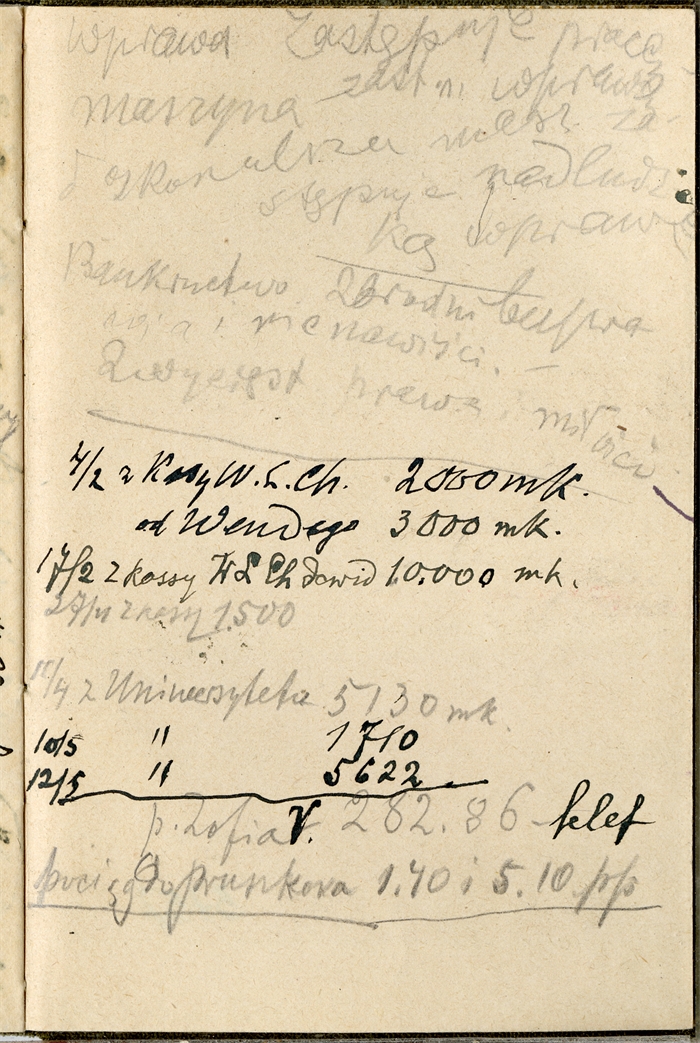 wprawa Zastępuje pracę
maszyna zast. wprawę
doskonalsza masz. za-
stępuje nadludz
ką wprawę
Bankructwo Zbrodni bezpra
i nienawiści. —
Zwycięst prawa i miłości
7/2 z Kasy W.S.Ch. 2000 mk.
od Wendego 3000 mk.
17/2 z kassy W S Ch Dawid 10.000 mk.
z kasy 1500
10/4 z Uniwersyteta 5130 mk.
10/5 " 1710
12/5 " 5622
p. Zofia V. 282.86 telef
pociąg do Pruszkowa 1.40 i 5.10 pp